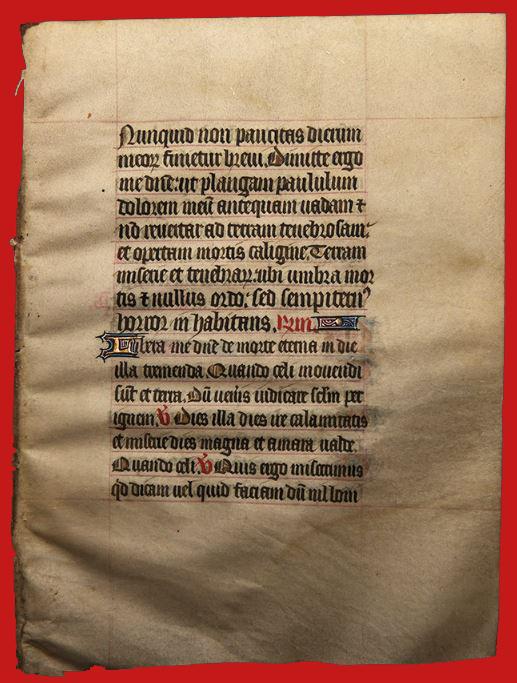 Nunquid non paucitas dierum
meoꝝ finietur breui. Dimitte ergo
me dn̄e: ut plangam paululum
dolorem meū antequam uadam ⁊
nō reuertar ad terram tenebrosam:
et opertam mortis caligine. Terram
miserie et tenebraꝝ: ubi umbra mor
tis ⁊ nullus ordo: sed sempitern᷒
horror in habitans.
Libera me dn̄e de morte eterna in die
illa tremenda Quando celi mouendi
sūt et terra. Dū ueneris iudicare sclm̄ per
ignem. ℣ Dies illa dies ire calamitatis
et miserie dies magna et amara ualde.
Quando celi. ℣ Quis ergo miserrimus
qd̄ dicam uel quid faciam dū nil boni